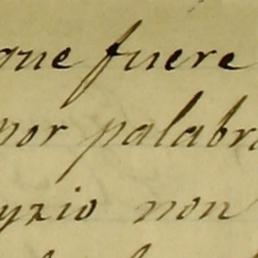 que fuere
por palabra
yzio non